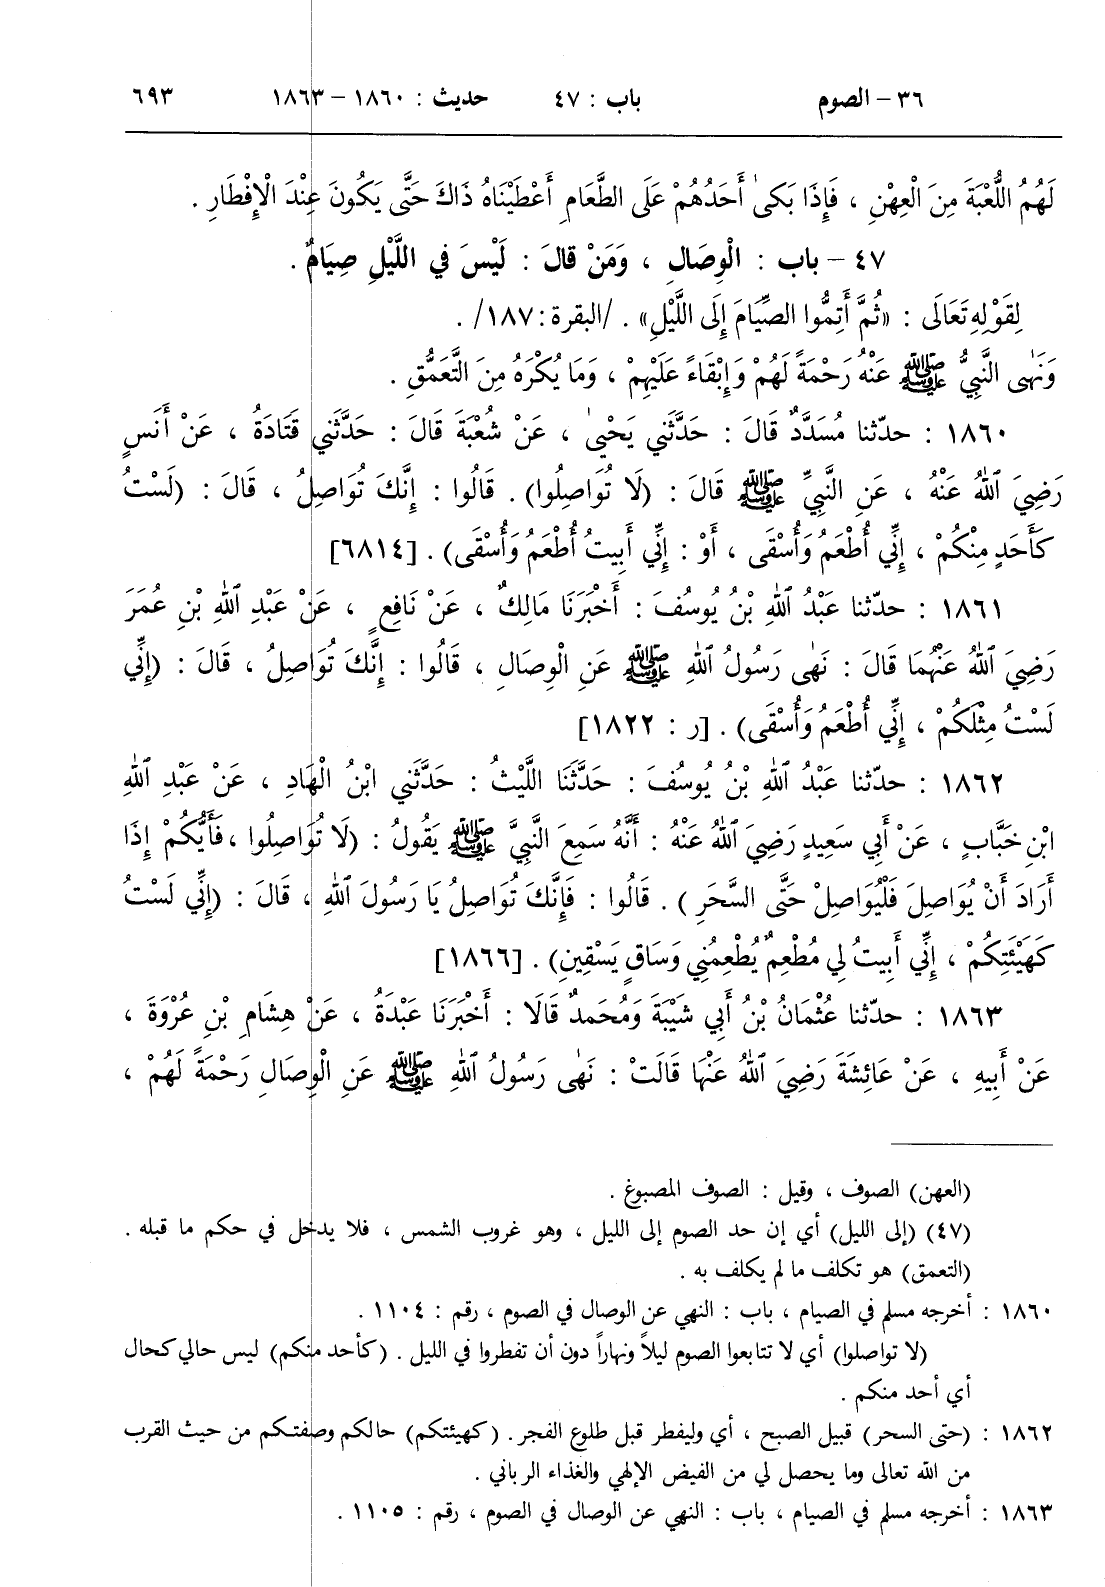 ٣٦ - الصوم باب : ٤٧ حديث : ١٨٦٠ - ١٨٦٣ ٦٩٣
لَهُمُ اللُّعْبَةَ مِنَ الْعِهْنِ ، فَإِذَا بَكىٰ أَحَدُهُمْ عَلَى الطَّعَامِ أَعْطَيْنَاهُ ذَاكَ حَتَّى يَكُونَ عِنْدَ الْإِفْطَارِ .
٤٧ - باب : الْوِصَالِ ، وَمَنْ قالَ : لَيْسَ في اللَّيْلِ صِيَامٌ .
لِقَوْلِهِ تَعَالَى : «ثُمَّ أَتِمُّوا الصِّيَامَ إِلَى اللَّيْلِ» . /البقرة : ١٨٧/ .
وَنَهٰى النَّبِيُّ ﷺ عَنْهُ رَحْمَةً لَهُمْ وَإِبْقَاءً عَلَيْهِمْ ، وَمَا يُكْرَهُ مِنَ التَّعَمُّقِ .
١٨٦٠ : حدّثنا مُسَدَّدٌ قَالَ : حَدَّثَنِي يَحْيىٰ ، عَنْ شُعْبَةَ قَالَ : حَدَّثَنِي قَتَادَةُ ، عَنْ أَنَسٍ
رَضِيَ اللهُ عَنْهُ ، عَنِ النَّبِيِّ ﷺ قَالَ : (لَا تُوَاصِلُوا) . قَالُوا : إِنَّكَ تُوَاصِلُ ، قَالَ : (لَسْتُ
كَأَحَدٍ مِنْكُمْ ، إِنِّي أُطْعَمُ وَأُسْقَى ، أَوْ : إِنِّي أَبِيتُ أُطْعَمُ وَأُسْقَى) . [٦٨١٤]
١٨٦١ : حدّثنا عَبْدُ اللهِ بْنُ يُوسُفَ : أَخْبَرَنَا مَالِكٌ ، عَنْ نَافِعٍ ، عَنْ عَبْدِ اللهِ بْنِ عُمَرَ
رَضِيَ اللهُ عَنْهُمَا قَالَ : نَهٰى رَسُولُ اللهِ ﷺ عَنِ الْوِصَالِ ، قَالُوا : إِنَّكَ تُوَاصِلُ ، قَالَ : (إِنِّي
لَسْتُ مِثْلَكُمْ ، إِنِّي أُطْعَمُ وَأُسْقَى) . [ر : ١٨٢٢]
١٨٦٢ : حدّثنا عَبْدُ اللهِ بْنُ يُوسُفَ : حَدَّثَنَا اللَّيْثُ : حَدَّثَنِي ابْنُ الْهَادِ ، عَنْ عَبْدِ اللهِ
ابْنِ خَبَّابٍ ، عَنْ أَبِي سَعِيدٍ رَضِيَ اللهُ عَنْهُ : أَنَّهُ سَمِعَ النَّبِيَّ ﷺ يَقُولُ : (لَا تُوَاصِلُوا ، فَأَيُّكُمْ إِذَا
أَرَادَ أَنْ يُوَاصِلَ فَلْيُوَاصِلْ حَتَّى السَّحَرِ ) . قَالُوا : فَإِنَّكَ تُوَاصِلُ يَا رَسُولَ اللهِ ، قَالَ : (إِنِّي لَسْتُ
كَهَيْئَتِكُمْ ، إِنِّي أَبِيتُ لِي مُطْعِمٌ يُطْعِمُنِي وَسَاقٍ يَسْقِينِ) . [١٨٦٦]
١٨٦٣ : حدّثنا عُثْمَانُ بْنُ أَبِي شَيْبَةَ وَمُحَمدٌ قَالَا : أَخْبَرَنَا عَبْدَةُ ، عَنْ هِشَامِ بْنِ عُرْوَةَ ،
عَنْ أَبِيهِ ، عَنْ عَائِشَةَ رَضِيَ اللهُ عَنْهَا قَالَتْ : نَهٰى رَسُولُ اللهِ ﷺ عَنِ الْوِصَالِ رَحْمَةً لَهُمْ ،
(العهن) الصوف ، وقيل : الصوف المصبوغ .
(٤٧) (إلى الليل) أي إن حد الصوم إلى الليل ، وهو غروب الشمس ، فلا يدخل في حكم ما قبله .
(التعمق) هو تكلف ما لم يكلف به .
١٨٦٠ : أخرجه مسلم في الصيام ، باب : النهي عن الوصال في الصوم ، رقم : ١١٠٤ .
(لا تواصلوا) أي لا تتابعوا الصوم ليلاً ونهاراً دون أن تفطروا في الليل . (كأحد منكم) ليس حالي كحال
أي أحد منكم .
١٨٦٢ : (حتى السحر) قبيل الصبح ، أي وليفطر قبل طلوع الفجر . (كهيئتكم) حالكم وصفتكم من حيث القرب
من الله تعالى وما يحصل لي من الفيض الإلهي والغذاء الرباني .
١٨٦٣ : أخرجه مسلم في الصيام ، باب : النهي عن الوصال في الصوم ، رقم : ١١٠٥ .